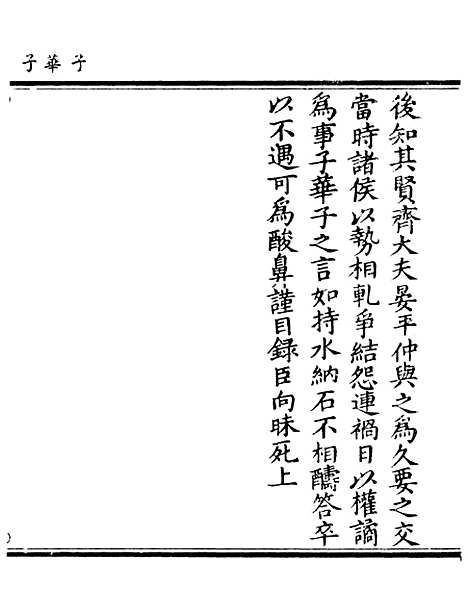 子華子
後知其賢齊大夫晏平仲與之爲久要之交
當時諸侯以勢相軋爭結怨連禍日以權譎
爲事子華子之言如持水納石不相醻答卒
以不遇可爲酸鼻謹目録臣向昧死上